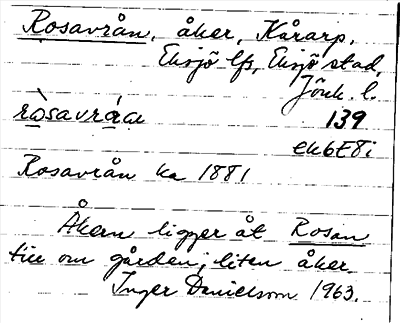 Rosavrån, åker, Kårarp,
Eksjö lfs, Eksjö stad,
Jönk. l.
ròsavrá̱a 139
ek6E8i
Rosavrån ka 1881
Åkern ligger åt Rosan
till om gården; liten åker.
Inger Danielsson 1963.